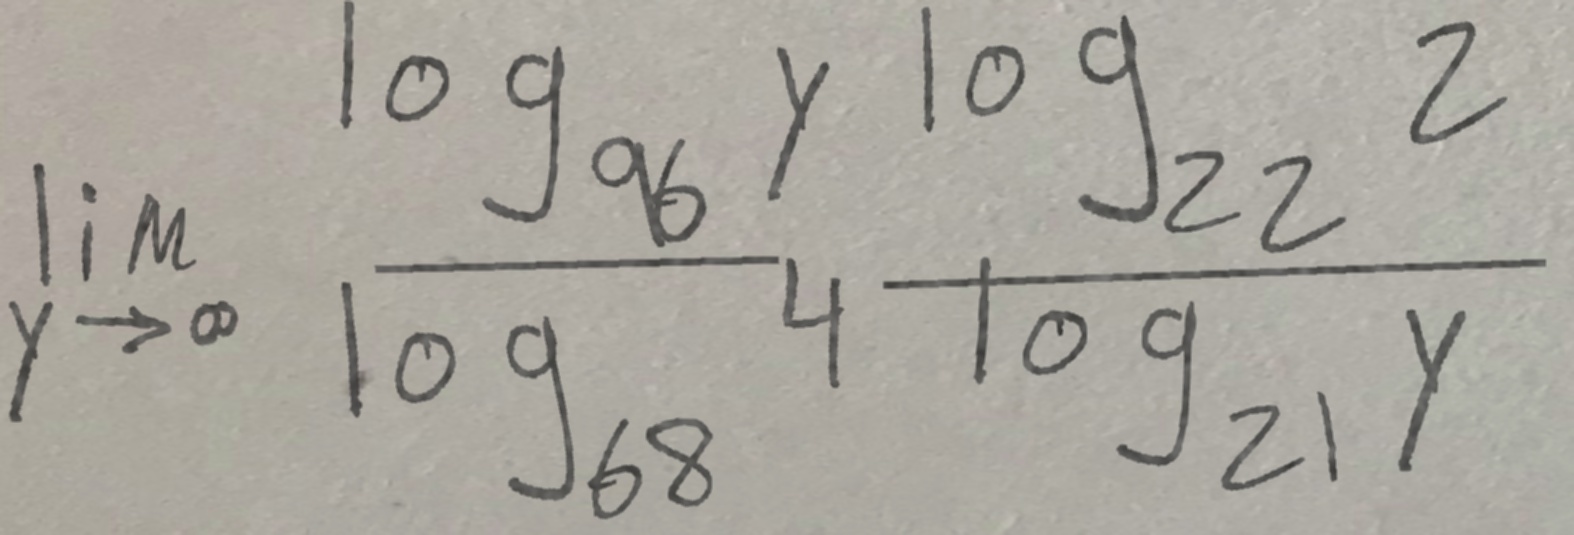 lim y→∞ log₉₆ y / log₆₈ 4 log₂₂ 2 / log₂₁ y